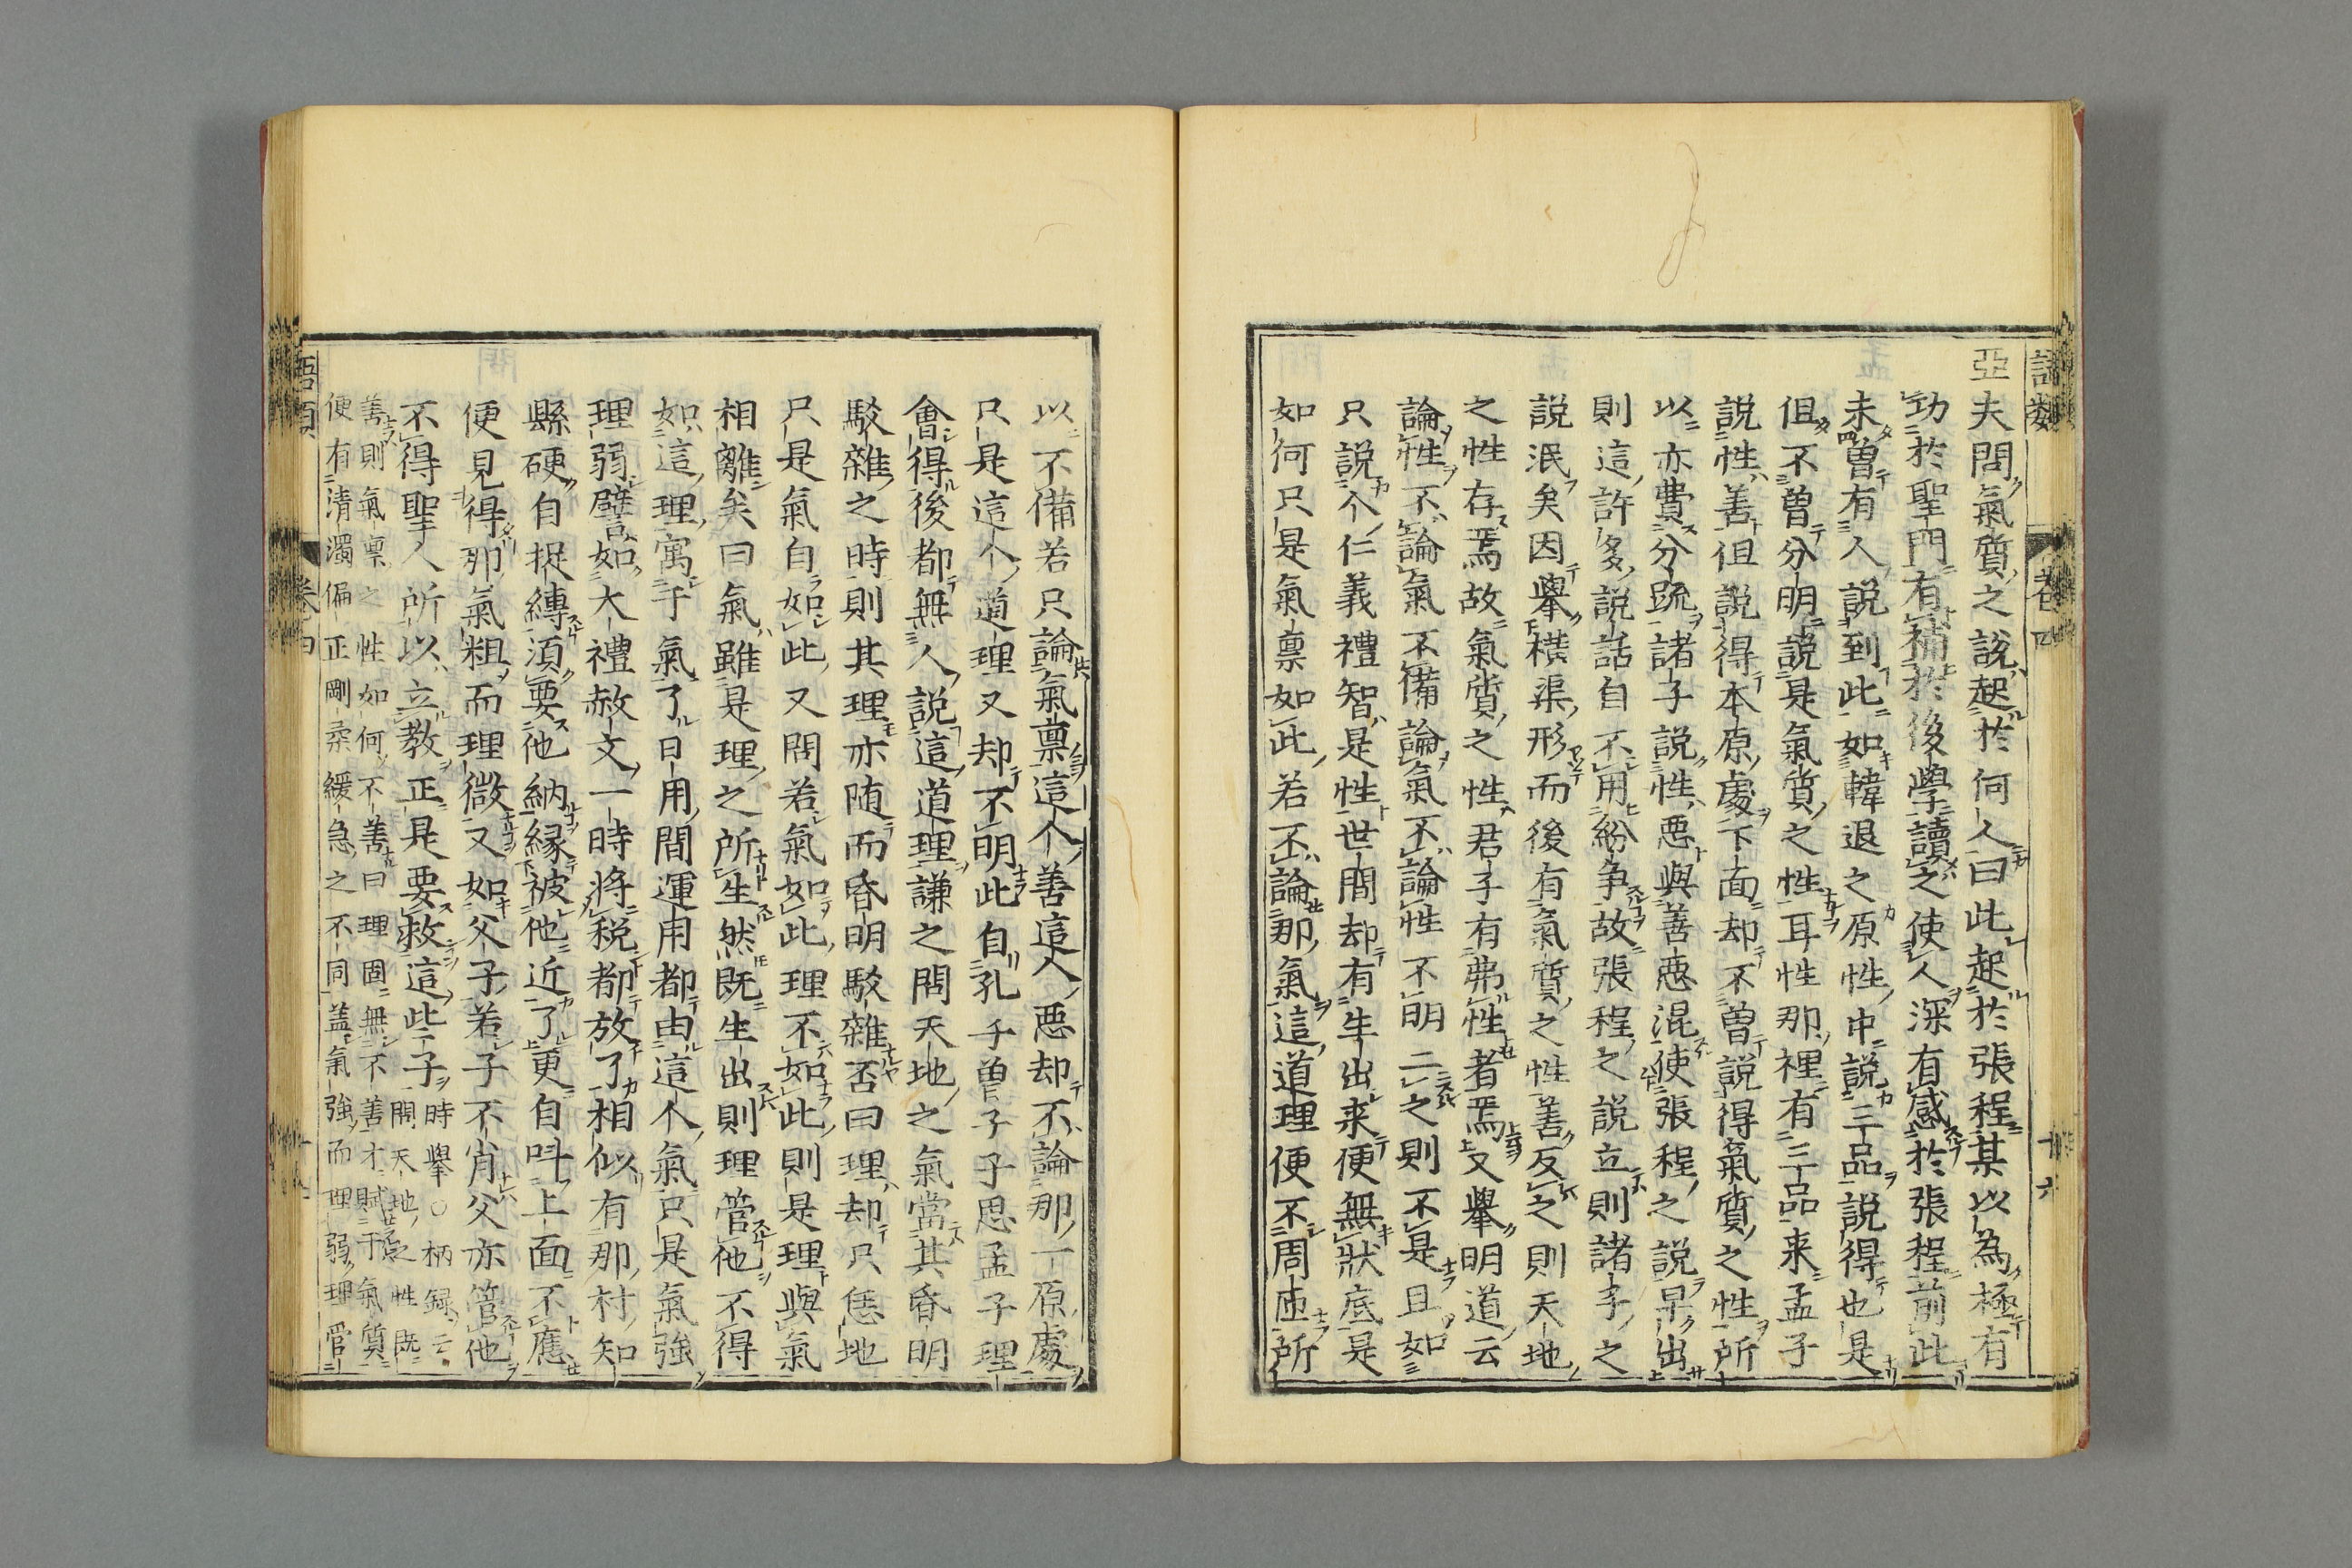 亞夫問氣質之說起於何人曰此起於張程某以為極有
功於聖門有補於後學讀之使人深有感於張程前此
未曽有人說到此如韓退之原性中說三品說得也是
但不曽分明說是氣質之性耳性那裡有三品來孟子
說性善但說得本原處下面却不曽說得氣質之性所
以亦費分疏諸子說性惡與善惡混使張程之說早出
則這許多說話自不用紛争故張程之說立則諸子之
說泯矣因擧横渠形而後有氣質之性善反之則天地
之性存焉故氣質之性君子有弗性者焉又擧明道云
論性不論氣不備論氣不論性不明二之則不是且如
只說个仁義禮智是性世間却有生出来便無狀底是
如何只是氣禀如此若不論那氣這道理便不周匝所
以不備若只論氣禀這个善這个惡却不論那一原處
只是這个道理又却不明此自孔子曽子子思孟子理
會得後都無人說這道理謙之問天地之氣當其昏明
駁雜之時則其理亦随而昏明駁雜否曰理却只恁地
只是氣自如此又問若氣如此理不如此則是理與氣
相離矣曰氣雖是理之所生然既生出則理管他不得
如這理寓于氣了日用間運用都由這个氣只是氣強
理弱譬如大禮赦文一時將税都放了相似有那村知
縣硬自捉縛須要他納縁被他近了更自叫上面不應
便見得那氣粗而理微又如父子若子不肖父亦管他
不得聖人所以立教正是要救這些子時擧○柄録云
問天地之性既
善則氣禀之性如何不善曰理固無不善才賦于氣質
便有清濁偏正剛柔緩急之不同蓋氣強而理弱理管
語類 卷四 十六